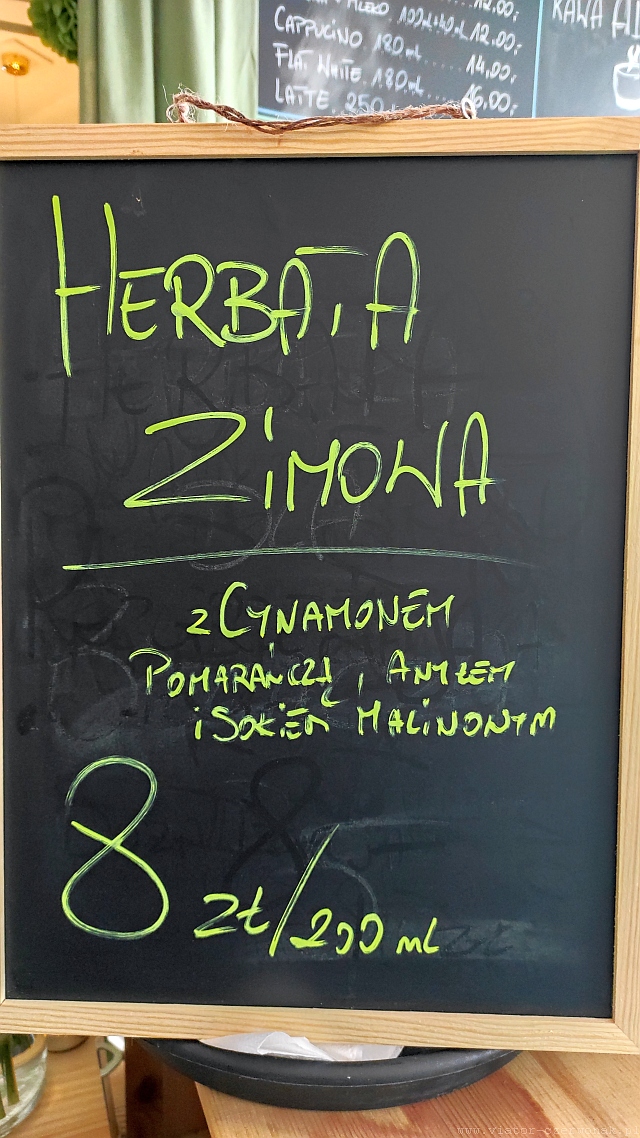 MLEKO 100ml+40ml 12,00,-
CAPPUCINO 180ml 14,00,-
FLAT WHITE 180ml 16,00,-
LATTE 250
KAWA
HERBATA
ZIMOWA
z CYNAMONEM
POMARAŃCZĄ, ANYŻEM
i SOKIEM MALINOWYM
8 zł/200 ml